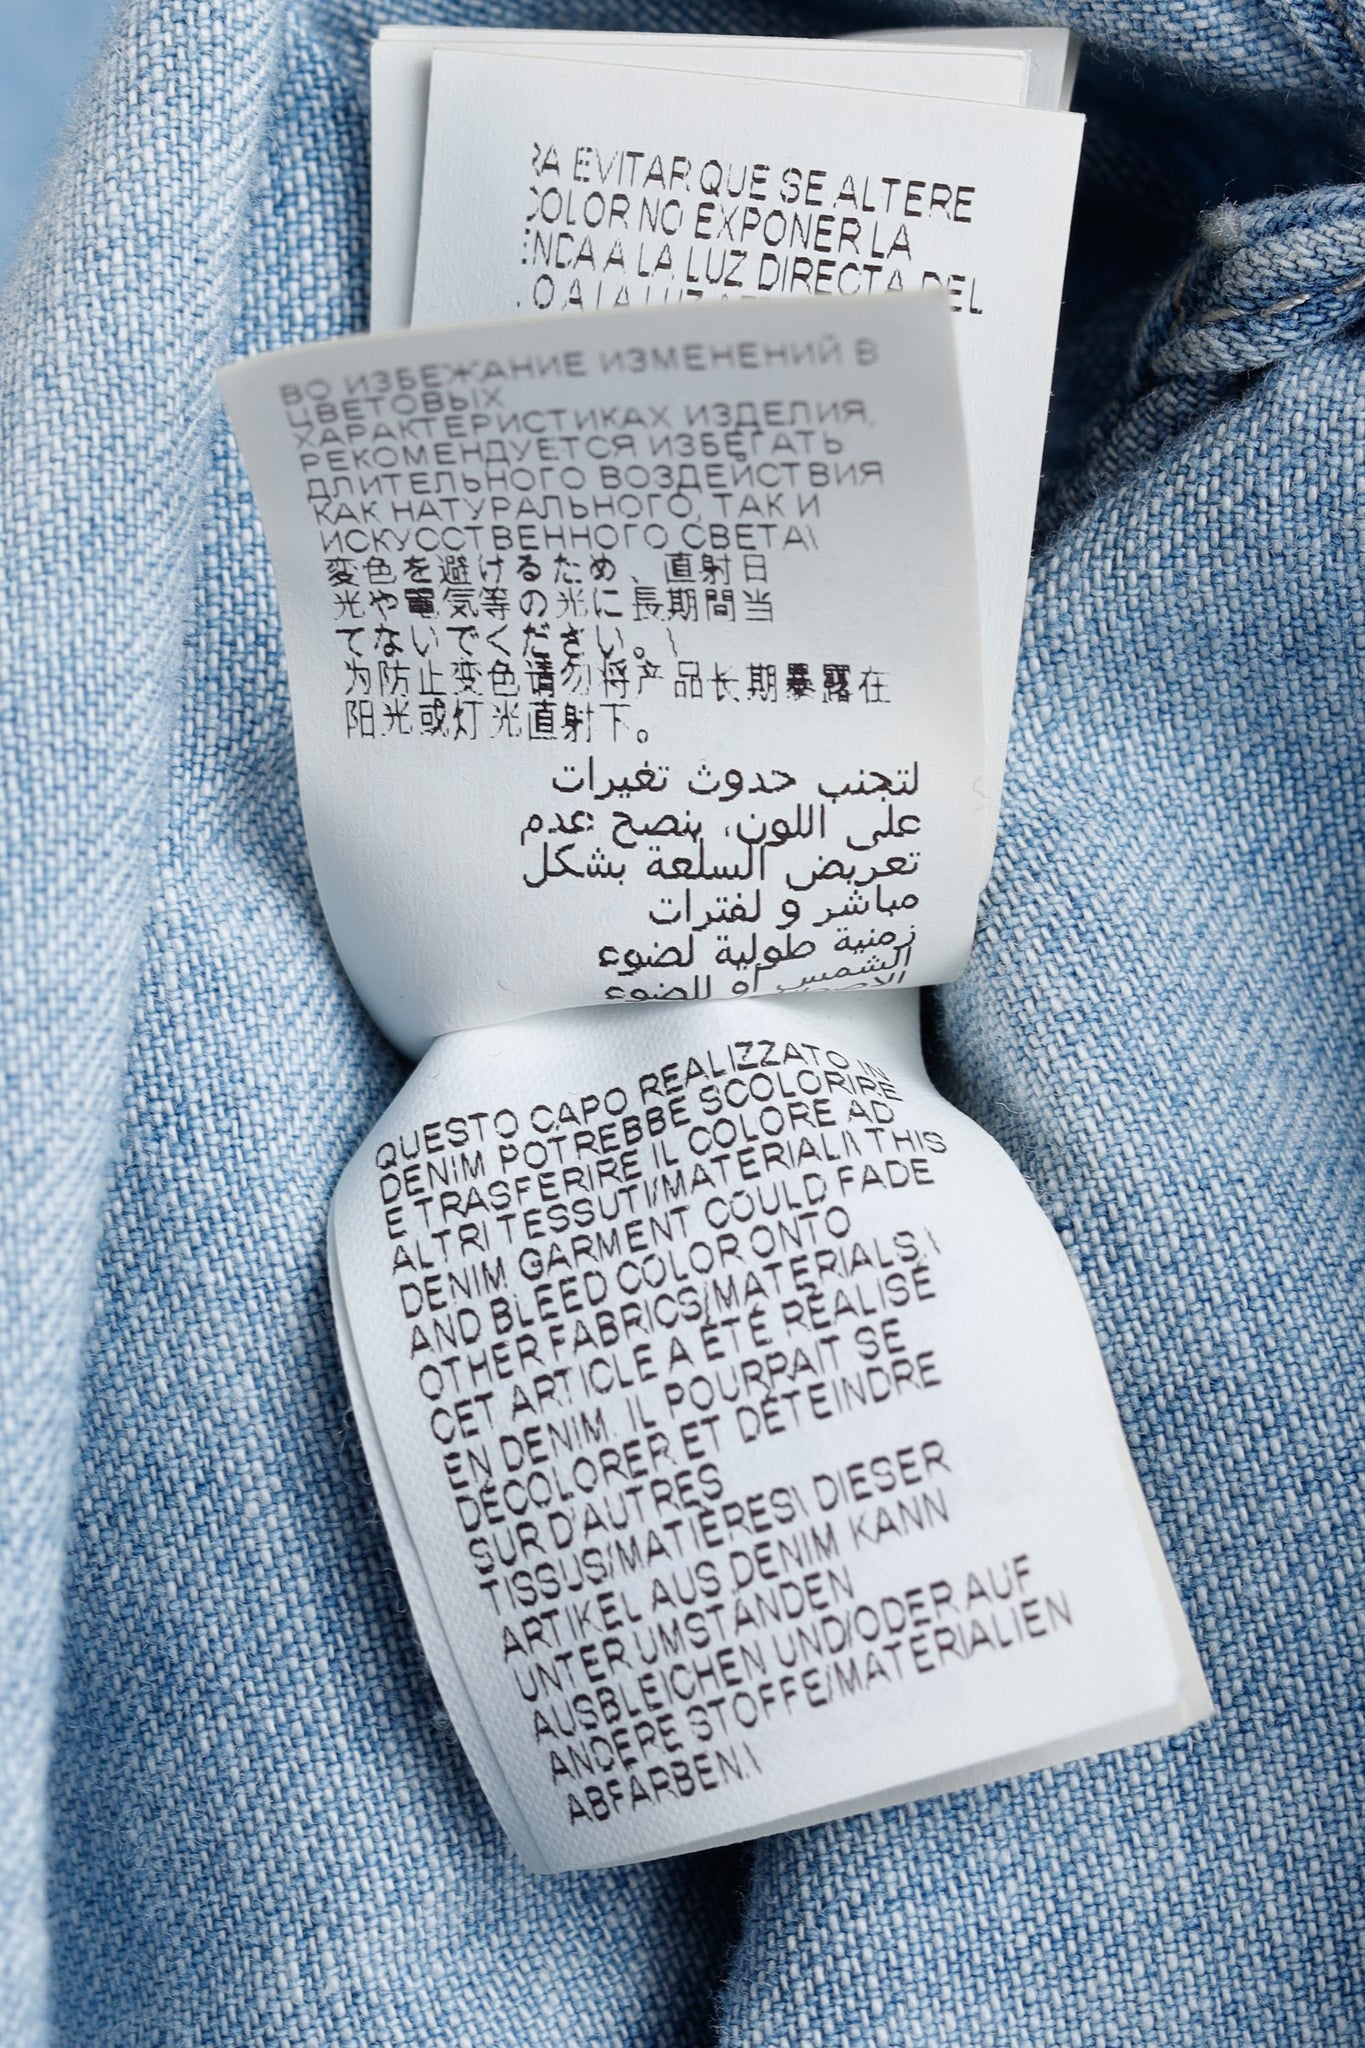 RA EVITAR QUE SE ALTERE
COLOR NO EXPONER LA
ENDA A LA LUZ DIRECTA DEL
O A LA LUZ
ВО ИЗБЕЖАНИЕ ИЗМЕНЕНИЙ В
ЦВЕТОВЫХ
ХАРАКТЕРИСТИКАХ ИЗДЕЛИЯ,
РЕКОМЕНДУЕТСЯ ИЗБЕГАТЬ
ДЛИТЕЛЬНОГО ВОЗДЕЙСТВИЯ
КАК НАТУРАЛЬНОГО, ТАК И
ИСКУССТВЕННОГО СВЕТА\
変色を避けるため、直射日
光や電気等の光に長期間当
てないでください。\
为防止变色请勿将产品长期暴露在
阳光或灯光直射下。
لتجنب حدوث تغيرات
على اللون، ينصح عدم
تعريض السلعة بشكل
مباشر و لفترات
زمنية طولية لضوء
الشمس أو للضوء
QUESTO CAPO REALIZZATO IN
DENIM POTREBBE SCOLORIRE
E TRASFERIRE IL COLORE AD
ALTRI TESSUTI/MATERIALI.\ THIS
DENIM GARMENT COULD FADE
AND BLEED COLOR ONTO
OTHER FABRICS/MATERIALS.\
CET ARTICLE A ÉTÉ RÉALISÉ
EN DENIM. IL POURRAIT SE
DÉCOLORER ET DÉTEINDRE
SUR D'AUTRES
TISSUS/MATIÈRES\ DIESER
ARTIKEL AUS DENIM KANN
UNTER UMSTÄNDEN
AUSBLEICHEN UND/ODER AUF
ANDERE STOFFE/MATERIALIEN
ABFÄRBEN.\